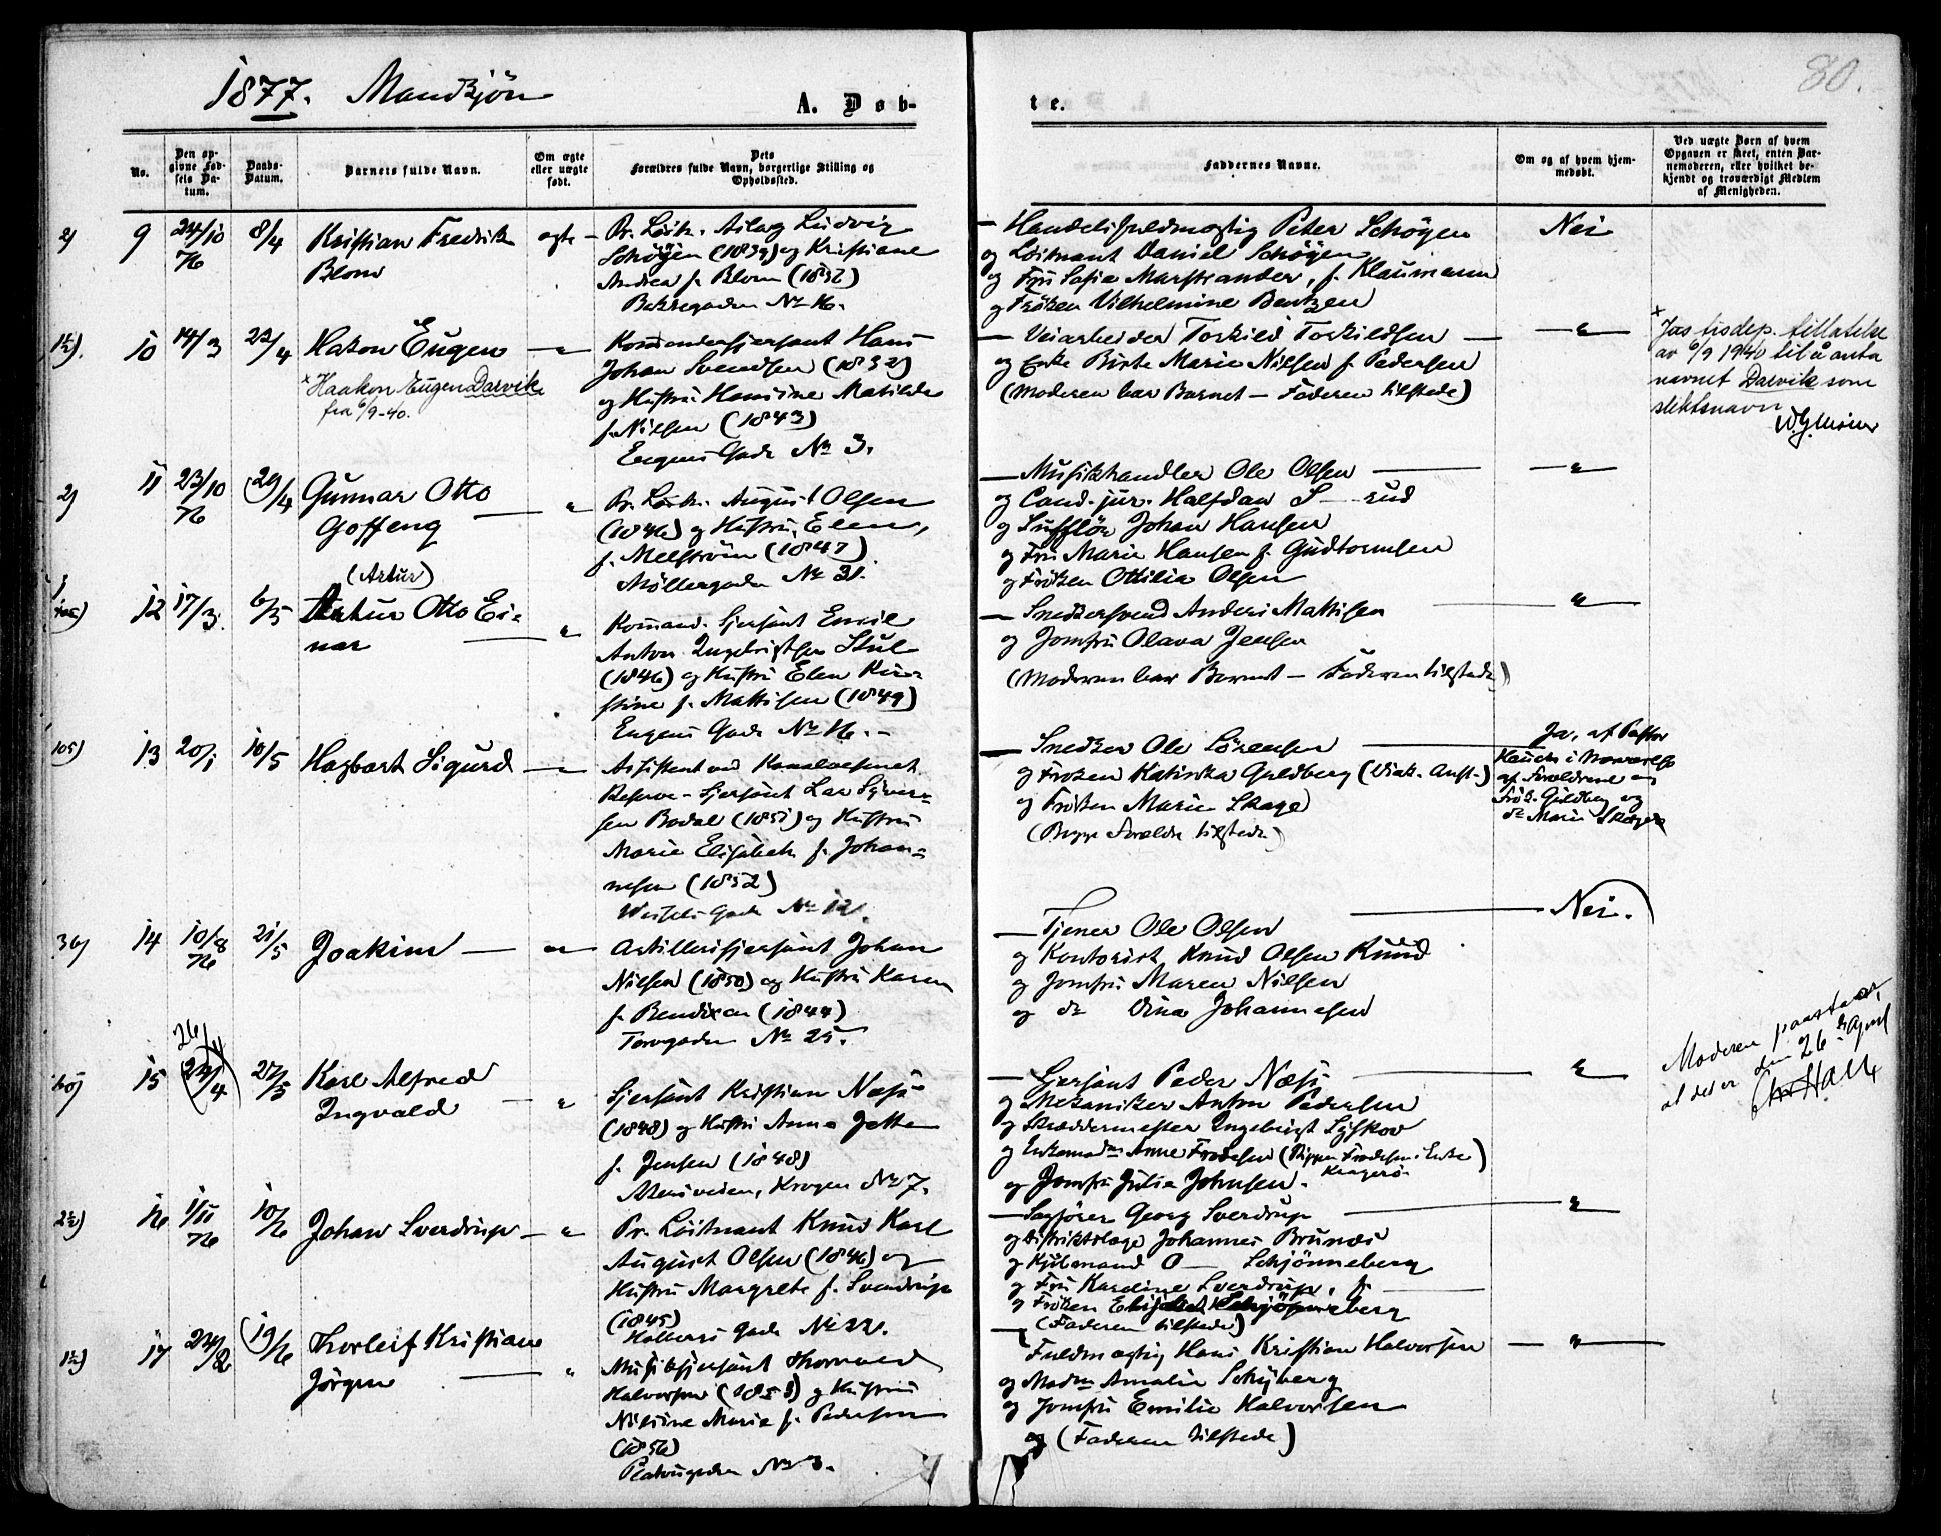 1877. Mandkjön
A. Døb-
te.
80.
No.
Den op-
givne Fød-
sels Da-
tum.
Daabs-
Datum.
Barnets fulde Navn.
Om ægte
eller uægte
født.
Dets
Forældres fulde Navn, borgerlige Stilling og
Opholdssted.
Faddernes Navne.
Om og af hvem hjem-
medøbt.
Ved uægte Børn af hvem
Opgaven er skeet, enten Bar-
nemoderen, eller hvilket be-
kjendt og troværdigt Medlem
af Menigheden.
2)
9
24/10
76
8/4
Kristian Fredrik
Blom
ægte
Pr. Löitn. Aslag Ludvig
Schøyen (1839) og Kristiane
Andrea f. Blom (1832)
No 16.
Handelsfuldmægtig Peter Schøyen
og Löitnant Daniel Schøyen
og Fru Sofie Marstrander, f. Klaumann
og Frøken Vilhelmine Bentzen
Nei
10
14/3
22/4
Hakon Eugen
x Haakon Eugen Darvik
fra 6/9-40.
"
Komandersjersant Hans
Johan Svendsen (1832)
og Hustru Hansine Matilde
f. Nilsen (1843)
Eugens Gade No 3.
Veiarbeider Torkild Torkildsen
og Enke Birte Marie Nilsen f. Pedersen
(Moderen bar Barnet – Faderen tilstede)
"
x
Jus tisdep. tillatelse
av 6/9 1940 til å anta
navnet Darvik som
slektsnavn
2)
11
23/10
76
(29/4
Gunnar Otto
Goffeng
"
Pr. Löitn. August Olsen
(1846) og Hustru Elen,
f. Melstrøm (1847)
Møllergaden No 31.
Musikhandler Ole Olsen
og Cand. jur. Halfdan S--rud
og Sufflør Johan Hansen
og Fru Marie Hansen f. Gudtormsen
og Frøken Ottilia Olsen
"
12
17/3
6/5
(Artur)
Artur Otto Ei-
nar
"
Komand. Sjersant Emil
Anton Ingebrigtsen Stul
(1846) og Hustru Elen Kir-
stine f. Mattisen (1849)
Eugens Gade No 16.
Snedkersvend Anders Mattisen
og Jomfru Olava Jensen
(Moderen bar Barnet – Faderen tilstede)
"
105)
13
20/1
10/5
Hagbart Sigurd
"
Assistent ved Kanalvesenet
Reserve-Sjersant Lars Syver-
sen Bodal (1851) og Hustru
Marie Elisabeth f. Johan-
nesen (1852)
Wessels Gade No 12.
Snedker Ole Sörensen
og Frøken Katinka Guldberg (Diak. Anst.)
og Frøken Marie Skage
(Begge Forældre tilstede)
Ja, af Pastor
af Forældrene og
Frøk. Guldberg og
do Marie Skage
36)
14
10/8
76
21/5
Joakim
"
Artillerisjersant Johan
Nilsen (1850) og Hustru Karen
f. Bendixen (1844)
Torvgaden No 25.
Tjener Ole Olsen
og Kontorist Knud Olsen Ruud
og Jomfru Maren Nilsen
og do Dina Johannesen
Nei.
15
26/4
(24/4)
27/5
Karl Alfred
Ingvald
"
Sjersant Kristian Næss
(1848) og Hustru Anna Jette
f. Jensen (1848)
Akersveien, Krogen No 7.
Sjersant Peder Næss
og Mekaniker Anton Pedersen
og Skræddermester Ingebrigt Lyskov
og Enkemadm Anne Frodesen (Skipper Frodesens Enke)
Kragerø
og Jomfru Julia Johnsen.
"
Moderen paastaar,
at det er den 26de April
Chr Hall
16
1/11
76
10/6
Johan Sverdrup
"
Pr. Löitnant Knud Karl
August Olsen (1846) og
Hustru Margrete f. Sverdrup
(1845)
Holbergs Gade No 22.
Sagfører Georg Sverdrup
og Distriktslæge Johannes Brunæs
og Kjöbmand O Schjønneberg
og Fru Karoline Sverdrup, f.
og Frøken Schjønneberg
(Faderen tilstede)
"
17
24/2
(19/6
Thorleif Kristian
Jørgen
"
Musiksjersant Thorvald
Halvorsen (1853) og Hustru
Nilsine Marie f. Pedersen
(1856)
No 3.
Fuldmægtig Hans Kristian Halvorsen
og Madm Amalie Schyberg
og Jomfru Emilie Halvorsen
og (Faderen tilstede)
"